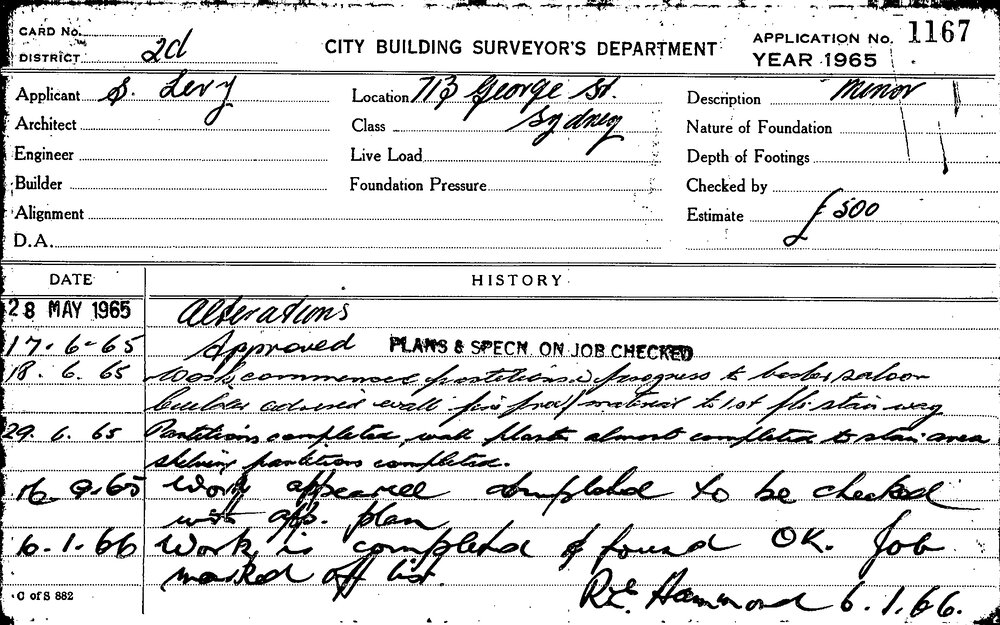 CARD No.
DISTRICT 2d
CITY BUILDING SURVEYOR'S DEPARTMENT
APPLICATION No. 1167
YEAR 1965
Applicant S. Levy
Location 713 George St.
Description Minor
Architect
Class Sydney
Nature of Foundation
Engineer
Live Load
Depth of Footings
Builder
Foundation Pressure
Checked by
Alignment
Estimate £500
D.A.
DATE HISTORY
28 MAY 1965 Alterations
17-6-65 Approved PLANS & SPECN. ON JOB CHECKED
18.6.65 Work commenced partitions in progress to barber saloon
builder advised wall fire proof material to 1st flr stair way
29.6.65 Partitions completed, wall almost completed to stair area
shelving partitions completed.
16-9-65 Work appeared completed to be checked
with app. plan
6.1.66 Work is completed & found OK. Job
marked off list.
R.E. Hammond 6.1.66.
C of S 882